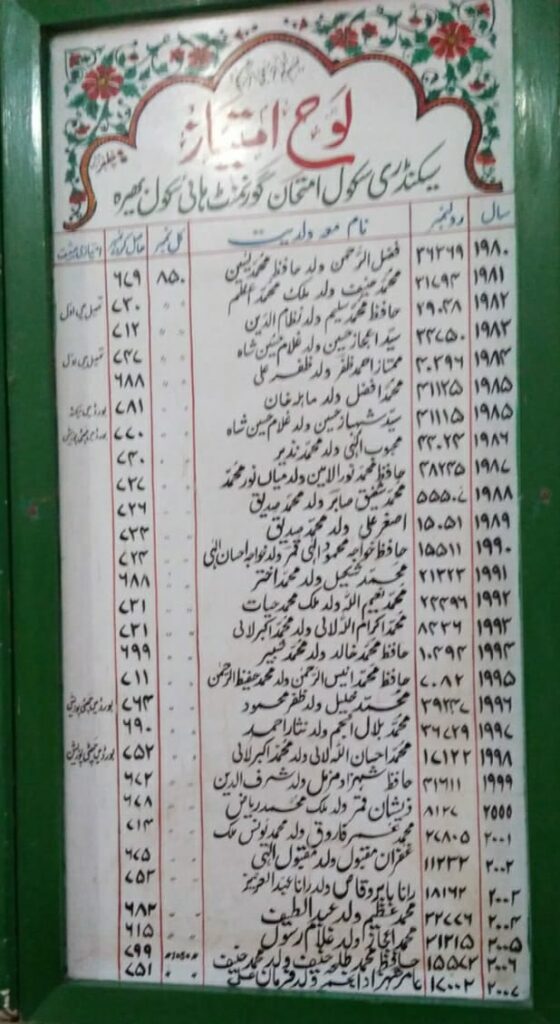 لوح امتیاز
سیکنڈری سکول امتحان گورنمنٹ ہائی سکول بھیرہ
سال رولنمبر نام معہ ولدیت کل نمبر حاصل کردہ نمبر امتیازی حیثیت
۱۹۸۰ ۳۶۳۶۹ فضل الرحمن ولد حافظ محمد یٰسین ۸۵۰ ۶۷۹
۱۹۸۱ ۳۱۷۹۴ محمد حنیف ولد ملک محمد اعظم " " ۷۳۰ تحصیل میں اول
۱۹۸۲ ۲۹۰۳۸ حافظ محمد سلیم ولد نظام الدین " " ۷۱۲
۱۹۸۳ ۳۴۷۵۰ سید اعجاز حسین ولد غلام حسین شاہ " " ۷۴۷ تحصیل میں اول
۱۹۸۴ ۴۰۲۹۶ ممتاز احمد ظفر ولد ظفر علی " " ۶۸۸
۱۹۸۵ ۴۱۱۲۵ محمد افضل ولد خان " " ۷۸۱
۱۹۸۵ ۳۱۱۱۵ سید شہباز حسین ولد غلام حسین شاہ " " ۷۷۰
۱۹۸۶ ۴۴۰۲۴ محبوب الٰہی ولد محمد نذیر " " ۷۴۰
۱۹۸۷ ۳۸۲۳۵ حافظ محمد نور الامین ولد میاں نور محمد " " ۷۳۷
۱۹۸۸ ۵۵۵۰۷ محمد شفیق صابر ولد محمد صدیق " " ۷۲۶
۱۹۸۹ ۱۵۰۵۱ اصغر علی ولد محمد صدیق " " ۷۳۴
۱۹۹۰ ۱۵۵۱۱ حافظ خواجہ محمود الٰہی قمر ولد خواجہ احسان الٰہی " " ۷۲۴
۱۹۹۱ ۲۱۳۲۳ محمد شکیل ولد محمد اختر " " ۶۸۸
۱۹۹۲ ۲۳۳۹۶ محمد نعیم اللہ ولد ملک محمد حیات " " ۷۳۱
۱۹۹۳ ۸۴۳۶ محمد اکرام اللہ لالی ولد محمد اکبر لالی " " ۷۳۱
۱۹۹۴ ۱۰۴۹۴ حافظ محمد خالد ولد محمد شبیر " " ۶۹۹
۱۹۹۵ ۷۰۸۲ حافظ محمد انیس الرحمن ولد محمد حفیظ الرحمن " " ۷۱۱
۱۹۹۶ ۳۹۲۳۷ محمد جلیل ولد ظفر محمود " " ۷۶۴ بورڈ میں چھٹی پوزیشن
۱۹۹۷ ۳۶۷۲۹ محمد بلال انجم ولد نثار احمد " " ۶۹۰
۱۹۹۸ ۱۷۱۲۲ محمد احسان اللہ لالی ولد محمد اکبر لالی " " ۷۵۲ بورڈ میں چھٹی پوزیشن
۱۹۹۹ ۳۱۶۱۱ حافظ شہزاد مزمل ولد شرف الدین " " ۶۷۲
۲۵۵۵ ۸۱۲۷ ذیشان قمر ولد ملک محمد ریاض " " ۶۷۸
۲۰۰۱ ۲۷۸۰۵ محمد عمر فاروق ولد محمد یونس ملک " " ۷۱۴
۲۰۰۲ ۱۱۲۳۲ غفران مقبول ولد مقبول الٰہی " " ۶۷۵
۲۰۰۳ ۱۸۱۶۲ رانا بابر وقاص ولد رانا عبدالعزیز " " ۷۵۳
۲۰۰۴ ۲۲۷۷۶ محمد عظیم ولد عبدالطیف " " ۶۸۲
۲۰۰۵ ۲۱۲۱۵ محمد اعجاز ولد غلام رسول " " ۶۱۵
۲۰۰۶ ۱۵۵۷۲ حافظ محمد طلحہ حنیف ولد محمد حنیف ۷۹۹
۲۰۰۷ ۱۷۰۰۲ عامر شہزاد ولد فرمان علی " " ۷۵۱